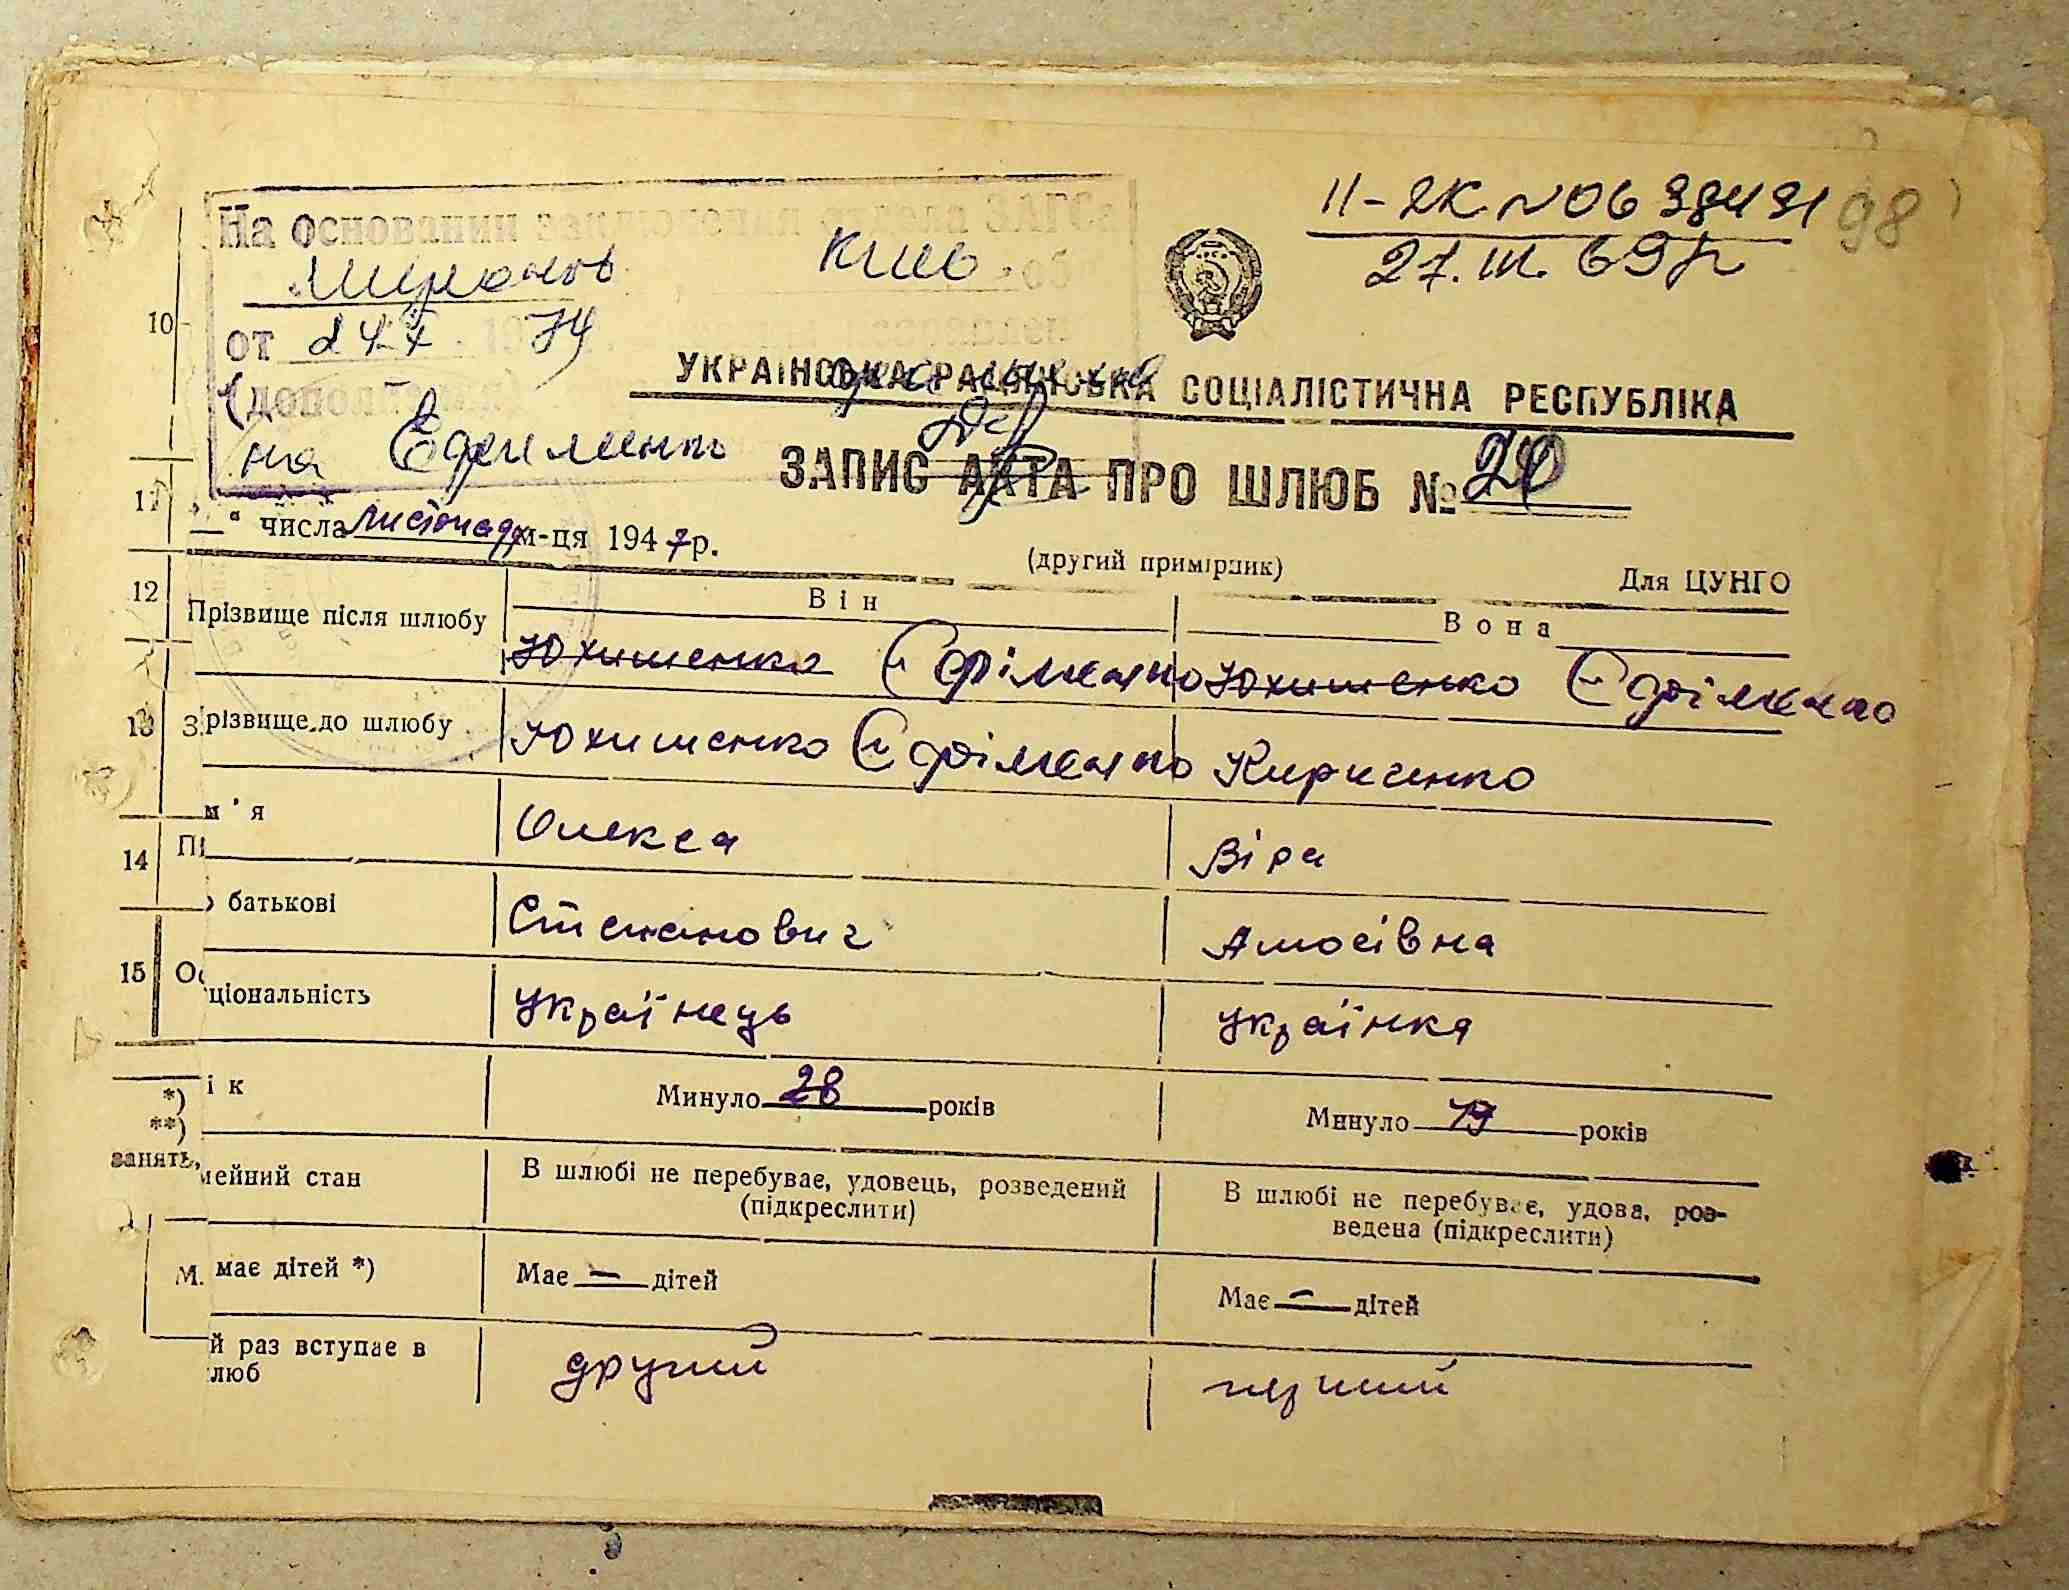 II-2К №0638491 98
27.III.69р
На основании заключения отдела ЗАГСа
Миронов Киев обл
от 24 X 1974
(дополнен
на Ефименко
УКРАЇНСЬКА РАДЯНСЬКА СОЦІАЛІСТИЧНА РЕСПУБЛІКА
ЗАПИС АКТА ПРО ШЛЮБ № 20
" числа листопада м-ця 1947 р.
(другий примірник) Для ЦУНГО
Він Вона
Прізвище після шлюбу Юхименко Єфіменко Юхименко Єфіменко
різвище до шлюбу Юхименко Єфіменко Кириченко
м'я Олекса Віра
батькові Степанович Амосівна
ціональність Українець Українка
ік Минуло 28 років Минуло 19 років
мейний стан В шлюбі не перебуває, удовець, розведений (підкреслити) В шлюбі не перебуває, удова, роз-
ведена (підкреслити)
має дітей *) Має — дітей Має — дітей
й раз вступає в
люб другий перший
10
11
12
13 З
14 П
15 Ос
*)
**)
занять,
М.